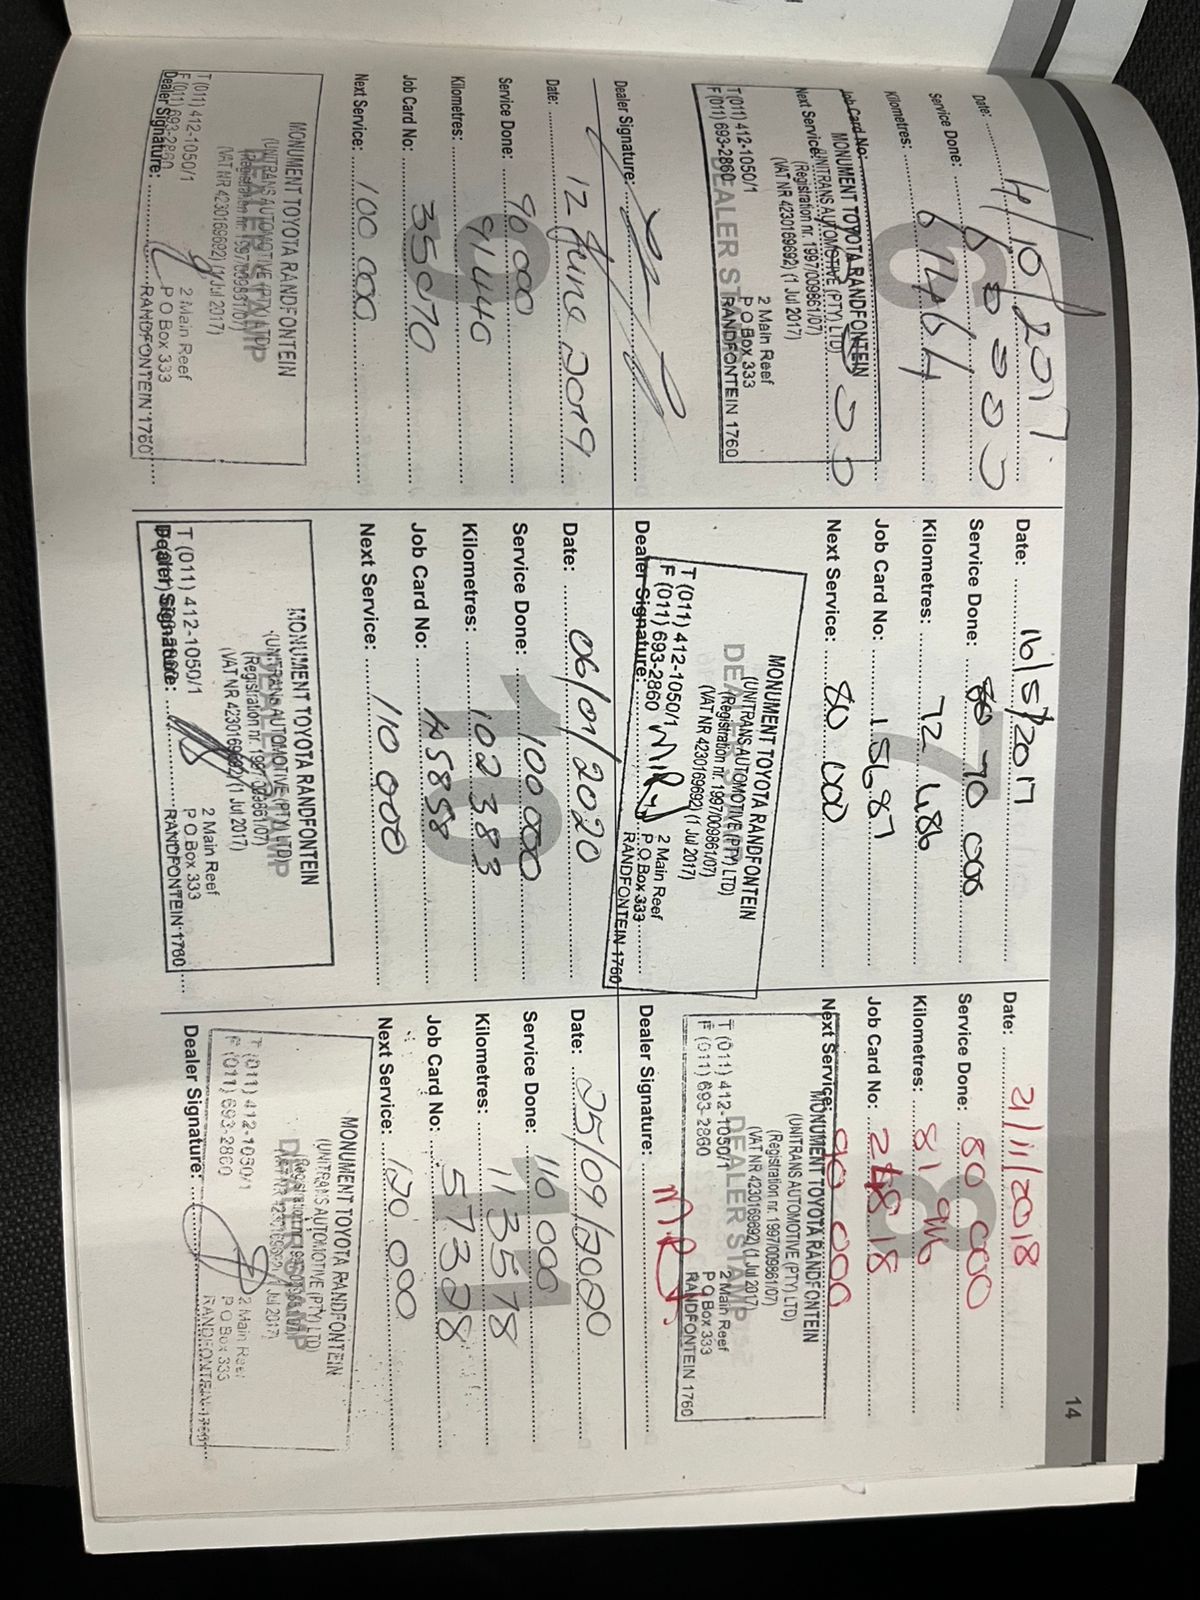 14
Date: 4/10/2017
Service Done: 60 000
Kilometres: 61464
Job Card No:
MONUMENT TOYOTA RANDFONTEIN
Next Service:
(UNITRANS AUTOMOTIVE (PTY) LTD)
(Registration nr. 1997/009861/07)
(VAT NR 4230169692) (1 Jul 2017)
DEALER
T (011) 412-1050/1
2 Main Reef
F (011) 693-2860
P O Box 333
RANDFONTEIN 1760
Dealer Signature:
7
Date: 16/5/2017
Service Done: 70 000
Kilometres: 72 486
Job Card No: 15687
Next Service: 80 000
MONUMENT TOYOTA RANDFONTEIN
(UNITRANS AUTOMOTIVE (PTY) LTD)
(Registration nr. 1997/009861/07)
(VAT NR 4230169692) (1 Jul 2017)
T (011) 412-1050/1
2 Main Reef
F (011) 693-2860
P O Box 333
RANDFONTEIN 1760
Dealer Signature:
8
Date: 21/11/2018
Service Done: 80 000
Kilometres: 81 946
Job Card No: 24818
Next Service: 90 000
MONUMENT TOYOTA RANDFONTEIN
(UNITRANS AUTOMOTIVE (PTY) LTD)
(Registration nr. 1997/009861/07)
(VAT NR 4230169692) (1 Jul 2017)
DEALER STAMP
T (011) 412-1050/1
2 Main Reef
F (011) 693-2860
P O Box 333
RANDFONTEIN 1760
Dealer Signature:
9
Date: 12 June 2019
Service Done: 90 000
Kilometres: 91440
Job Card No: 35070
Next Service: 100 000
MONUMENT TOYOTA RANDFONTEIN
(UNITRANS AUTOMOTIVE (PTY) LTD)
(Registration nr. 1997/009861/07)
(VAT NR 4230169692) (1 Jul 2017)
T (011) 412-1050/1
2 Main Reef
F (011) 693-2860
P O Box 333
Dealer Signature:
RANDFONTEIN 1760
10
Date: 06/01/2020
Service Done: 100 000
Kilometres: 102383
Job Card No: 45888
Next Service: 110 000
MONUMENT TOYOTA RANDFONTEIN
(UNITRANS AUTOMOTIVE (PTY) LTD)
(Registration nr. 1997/009861/07)
(VAT NR 4230169692) (1 Jul 2017)
T (011) 412-1050/1
2 Main Reef
P O Box 333
Dealer Signature:
RANDFONTEIN 1760
11
Date: 25/09/2020
Service Done: 110 000
Kilometres: 113578
Job Card No: 57328
Next Service: 120 000
MONUMENT TOYOTA RANDFONTEIN
(UNITRANS AUTOMOTIVE (PTY) LTD)
T (011) 412-1050/1
2 Main Reef
F (011) 693-2860
P O Box 333
RANDFONTEIN 1760
Dealer Signature: